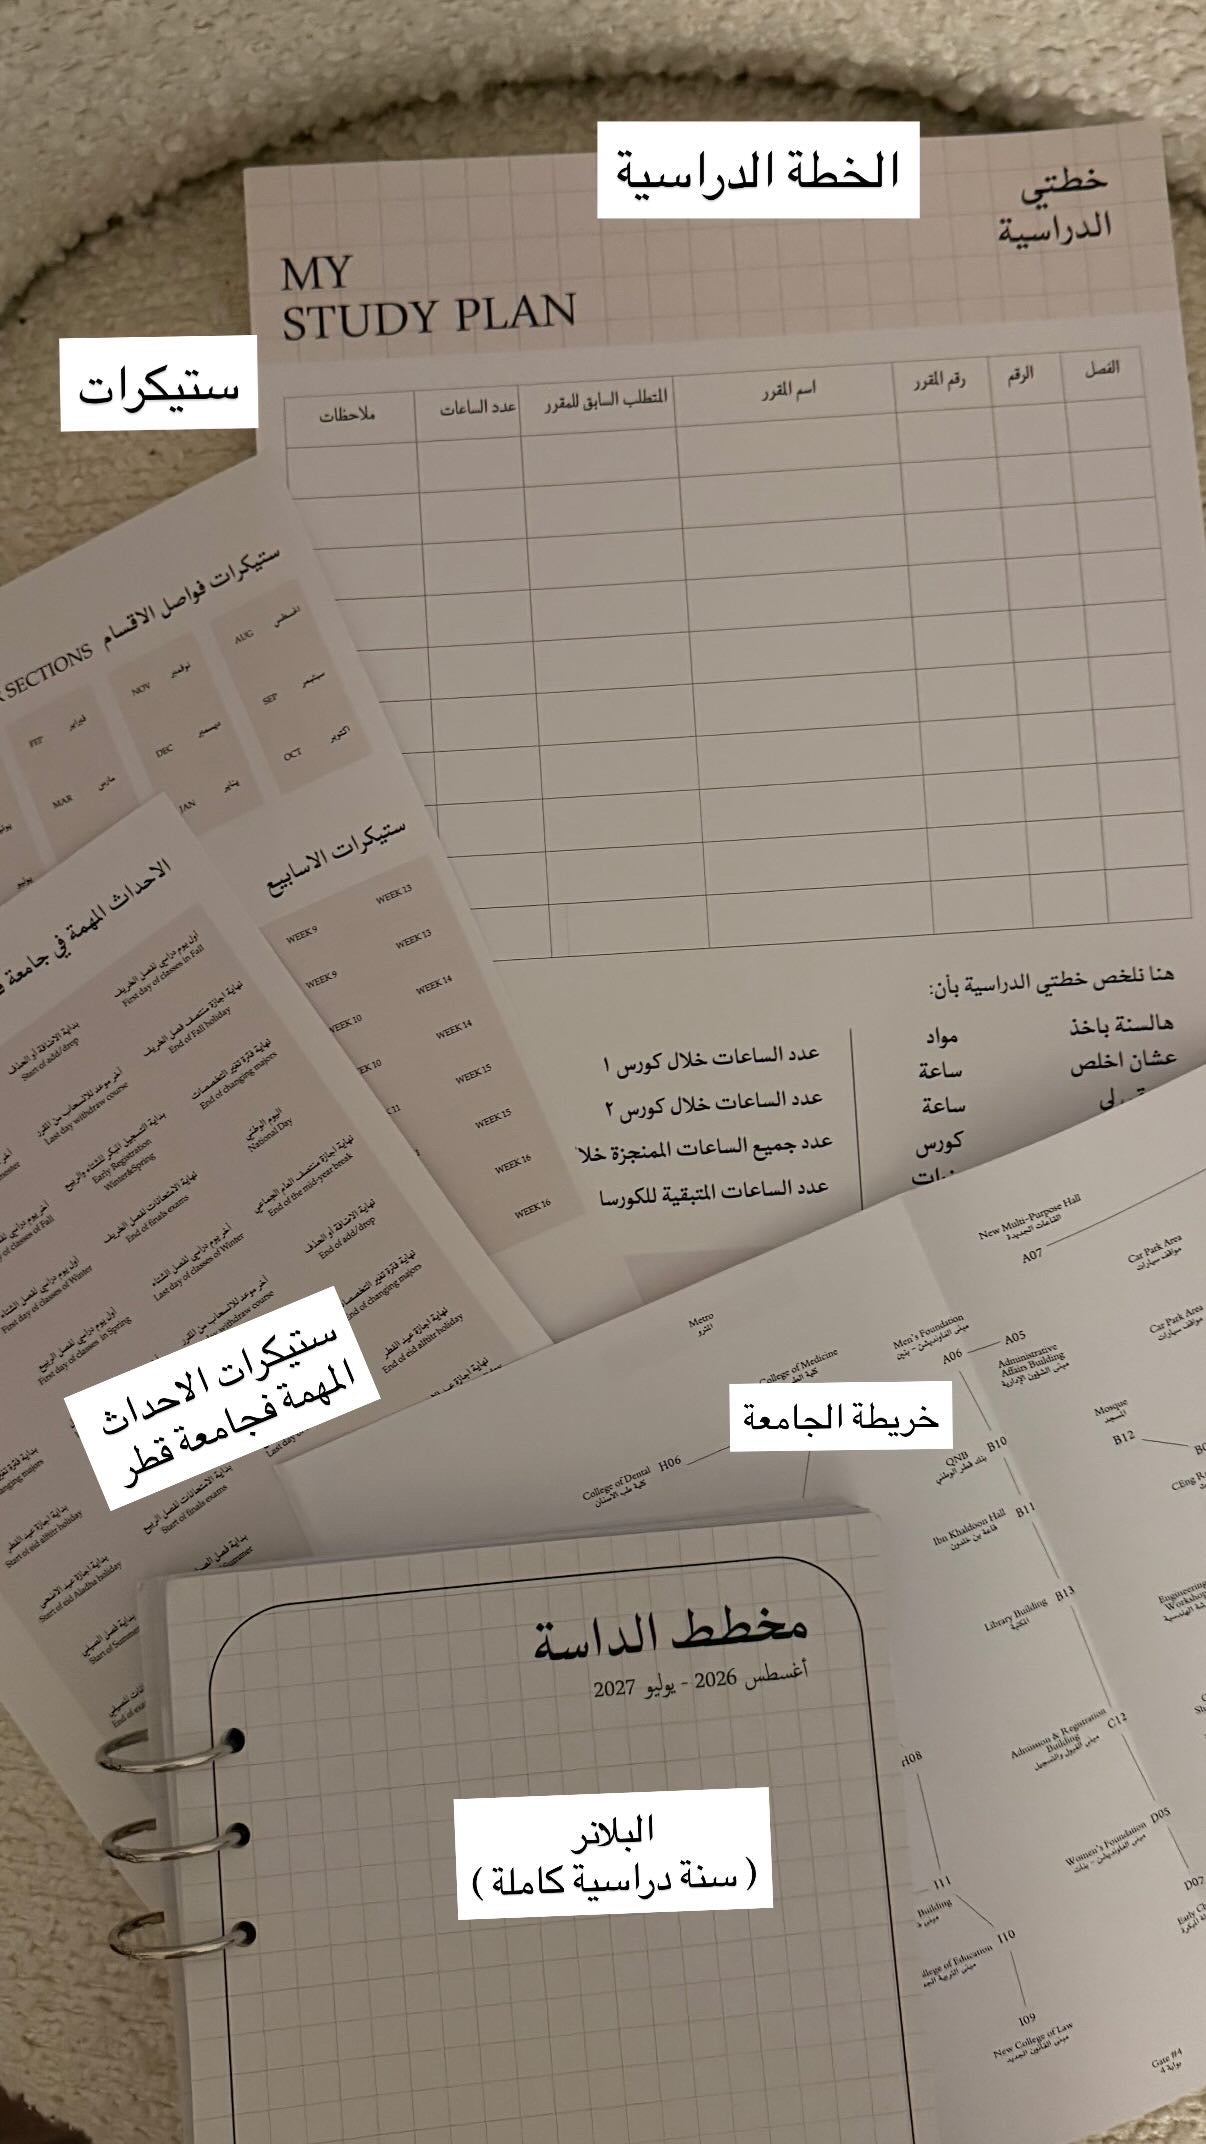 الخطة الدراسية
خطتي
الدراسية
MY
STUDY PLAN
ستيكرات
الفصل
الرقم
رقم المقرر
اسم المقرر
المتطلب السابق للمقرر
عدد الساعات
ملاحظات
ستيكرات فواصل الاقسام
SECTIONS
AUG
اغسطس
SEP
سبتمبر
OCT
اكتوبر
NOV
نوفمبر
DEC
ديسمبر
JAN
يناير
FEP
فبراير
MAR
مارس
يوليو
ستيكرات الاسابيع
WEEK 13
WEEK 13
WEEK 14
WEEK 14
WEEK 15
WEEK 15
WEEK 16
WEEK 16
WEEK 9
WEEK 9
هنا نلخص خطتي الدراسية بأن:
هالسنة باخذ
مواد
عشان اخلص
ساعة
ساعة
كورس
عدد الساعات خلال كورس ١
عدد الساعات خلال كورس ٢
عدد جميع الساعات المنجزة
عدد الساعات المتبقية
الاحداث المهمة في جامعة
أول يوم دراسي لفصل الخريف
First day of classes in Fall
نهاية اجازة منتصف فصل الخريف
End of Fall holiday
نهاية فترة تغير التخصصات
End of changing majors
اليوم الوطني
National Day
نهاية اجازة منتصف العام الجامعي
End of the mid-year break
نهاية الاضافة أو الحذف
End of add/ drop
End of changing majors
نهاية اجازة عيد الفطر
End of eid alfitr holiday
بداية الاضافة أو الحذف
Start of add/ drop
آخر موعد للانسحاب من المقرر
Last day withdraw course
بداية التسجيل المبكر للشتاء والربيع
Early Registration
Winter&Spring
نهاية الامتحانات لفصل الخريف
End of finals exams
آخر يوم دراسي لفصل الشتاء
Last day of classes of Winter
آخر موعد للانسحاب من
withdraw course
First day of classes of Winter
أول يوم دراسي لفصل الربيع
First day of classes in Spring
بداية الامتحانات لفصل الربيع
Start of finals exams
بداية اجازة عيد الفطر
Start of eid alfitr holiday
بداية اجازة عيد الاضحى
Start of eid Aladha holiday
بداية فصل الصيفي
Start of Summer
ستيكرات الاحداث
المهمة فجامعة قطر
خريطة الجامعة
New Multi-Purpose Hall
القاعات الجديدة
A07
Car Park Area
مواقف سيارات
Car Park Area
مواقف سيارات
Metro
المترو
Men's Foundation
مبنى الفاونديشن - بنين
A06
A05
Administrative
Affairs Building
مبنى الشؤون الإدارية
College of Medicine
Mosque
المسجد
B12
College of Dental
كلية طب الاسنان
H06
QNB
بنك قطر الوطني
B10
Ibn Khaldoon Hall
قاعة بن خلدون
B11
Library Building
المكتبة
B13
Admission & Registration
Building
مبنى القبول والتسجيل
C12
Women's Foundation
مبنى الفاونديشن - بنات
D05
D07
H08
I11
Building
of Education
I10
I09
New College of Law
مبنى القانون الجديد
Gate #4
بوابة 4
مخطط الداسة
أغسطس 2026 - يوليو 2027
البلانر
( سنة دراسية كاملة )